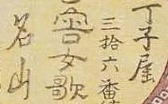 丁子屋
三拾六番
雪女歌
名山